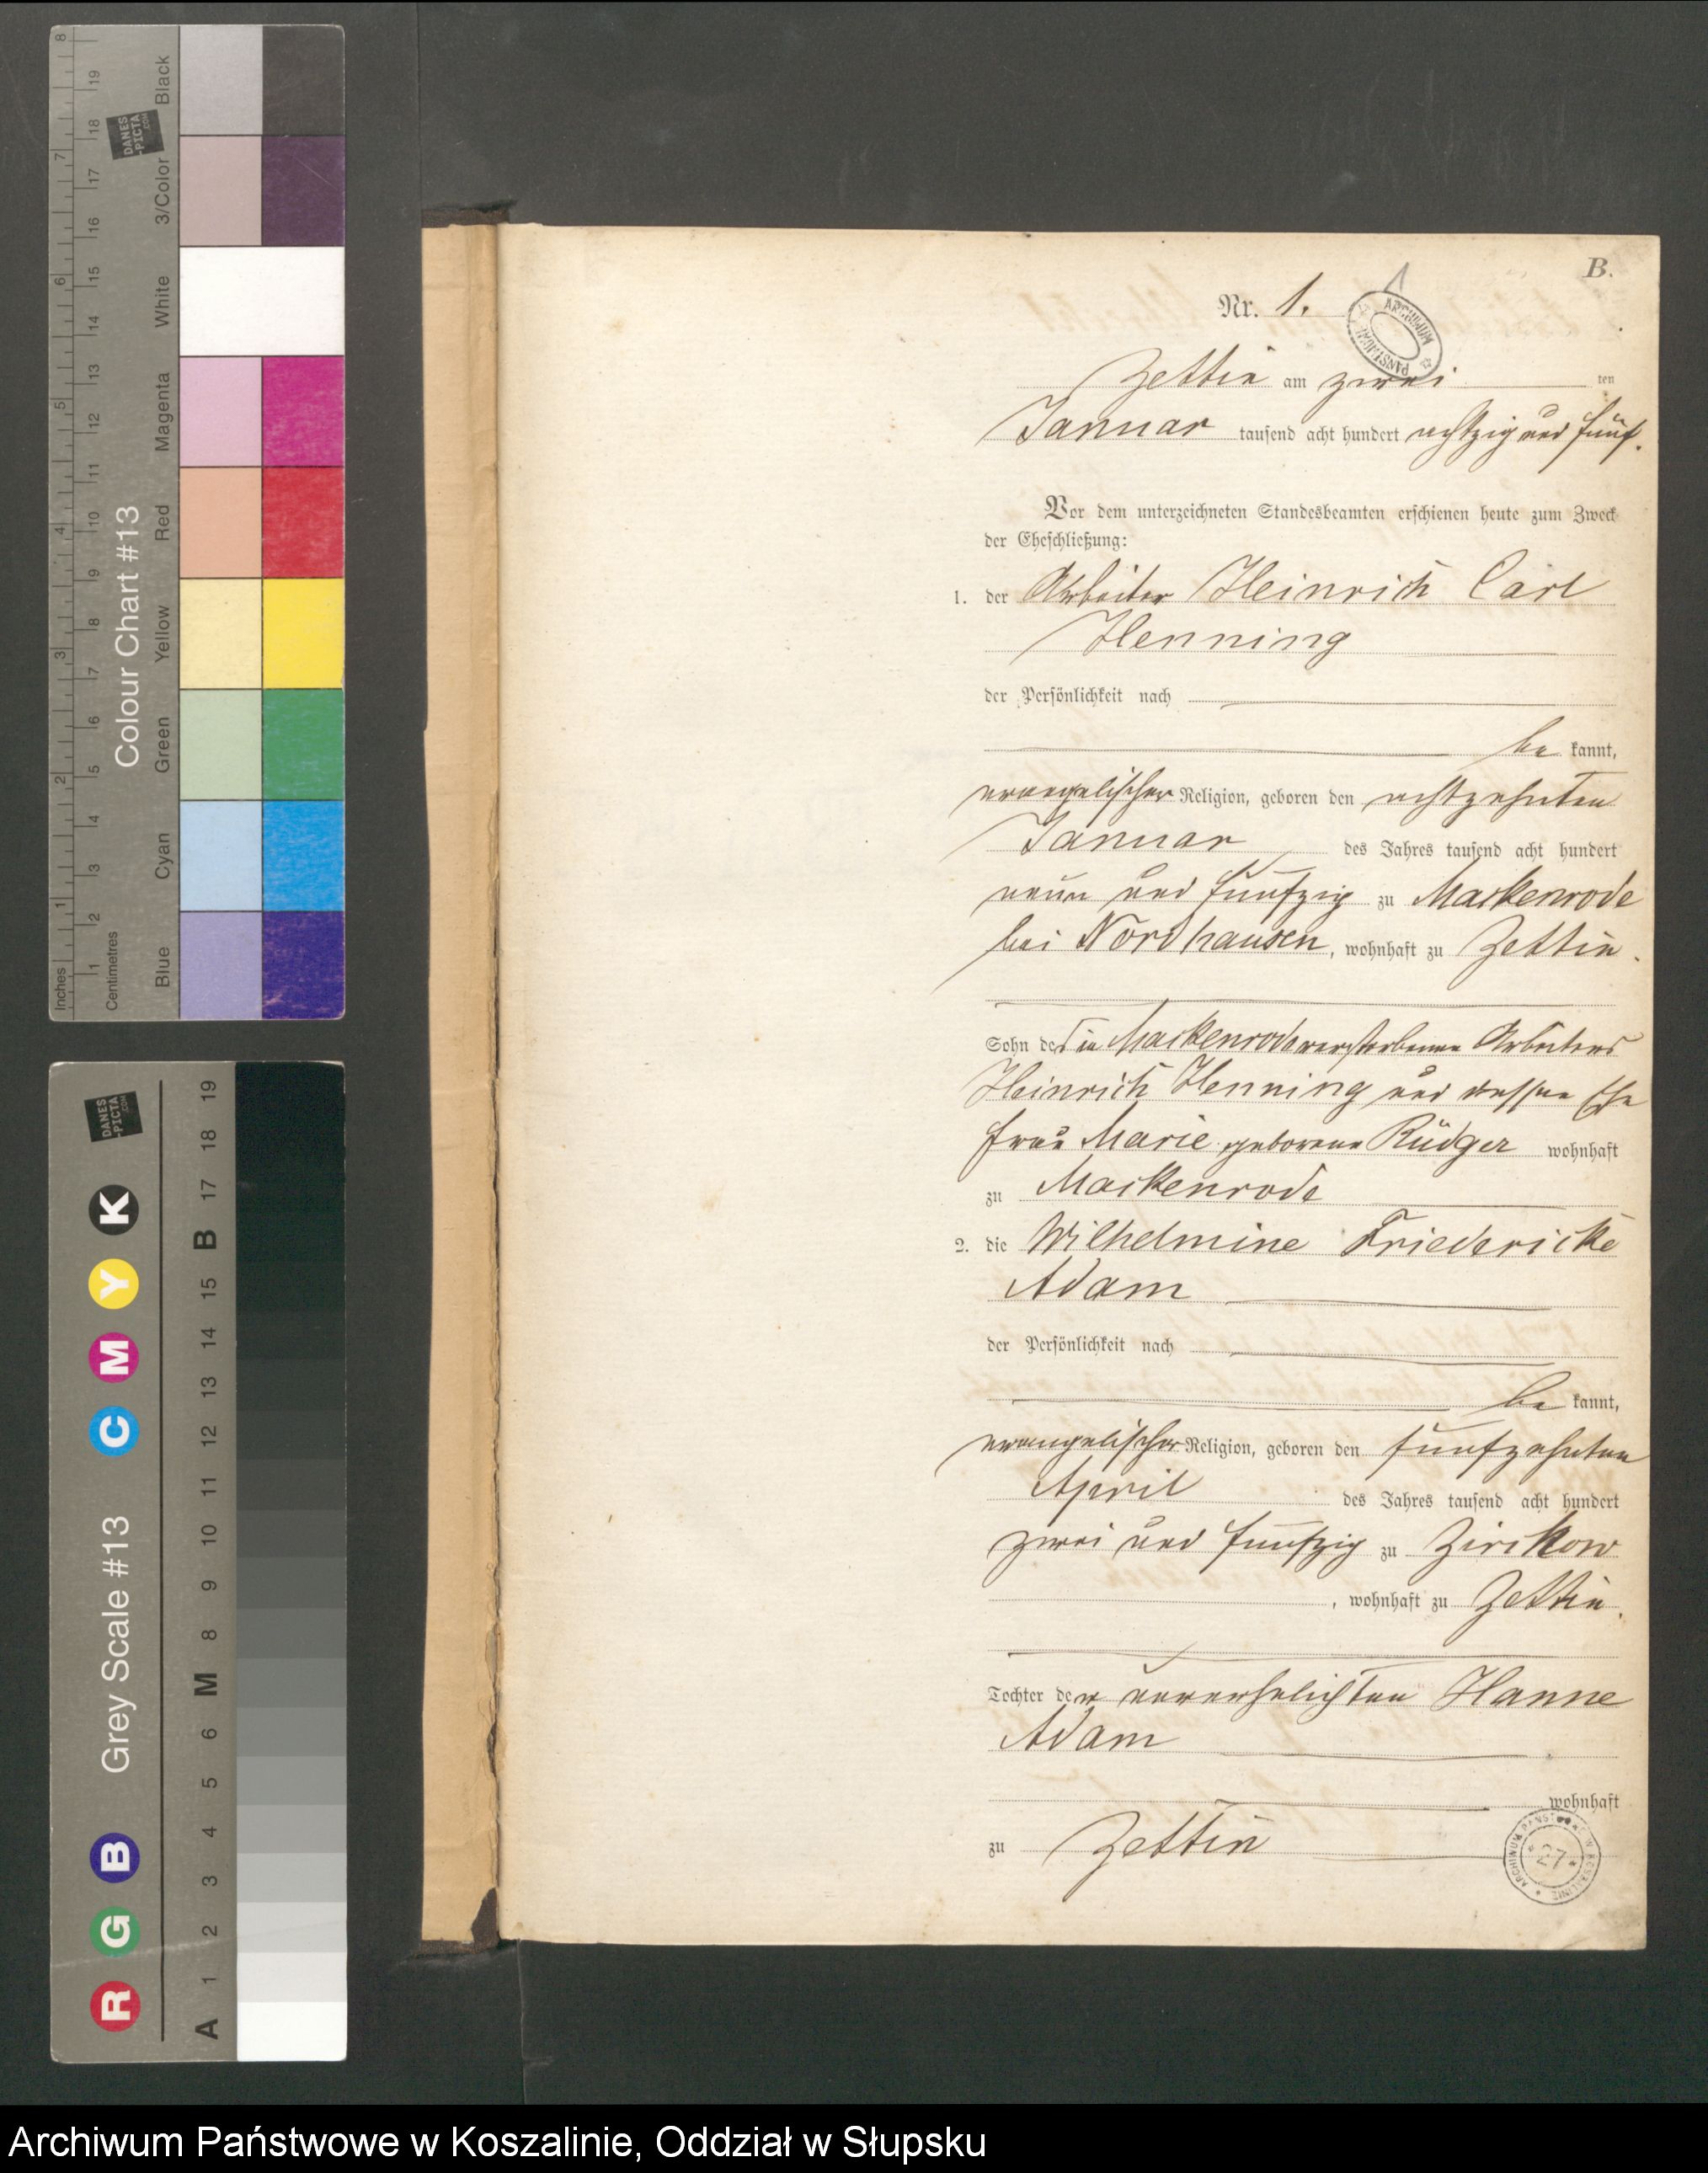 B.
Nr. 1.
1
ARCHIWUM PAŃSTWOWE
Zettin am zwei ten
Januar tausend acht hundert achtzig und fünf.
Vor dem unterzeichneten Standesbeamten erschienen heute zum Zweck
der Eheschließung:
1. der Arbeiter Heinrich Carl
Henning
der Persönlichkeit nach
be kannt,
evangelischer Religion, geboren den achtzehnten
Januar des Jahres tausend acht hundert
neun und fünfzig zu Mackenrode
bei Nordhausen, wohnhaft zu Zettin.
Sohn des in Mackenrode verstorbenen Arbeiters
Heinrich Henning und dessen Ehe
frau Marie geborene Rüdger wohnhaft
zu Mackenrode
2. die Wilhelmine Friedericke
Adam
der Persönlichkeit nach
be kannt,
evangelischer Religion, geboren den fünfzehnten
April des Jahres tausend acht hundert
zwei und fünfzig zu Zirckow
, wohnhaft zu Zettin.
Tochter der unverehelichten Hanne
Adam
wohnhaft
zu Zettin
27
Colour Chart #13
Inches
Centimetres
Blue Cyan Green Yellow Red Magenta White 3/Color Black
DANES-PICTA.COM
Grey Scale #13
R G B C M Y K
A 1 2 3 4 5 6 M 8 9 10 11 12 13 14 15 B 17 18 19
DANES-PICTA.COM
Archiwum Państwowe w Koszalinie, Oddział w Słupsku